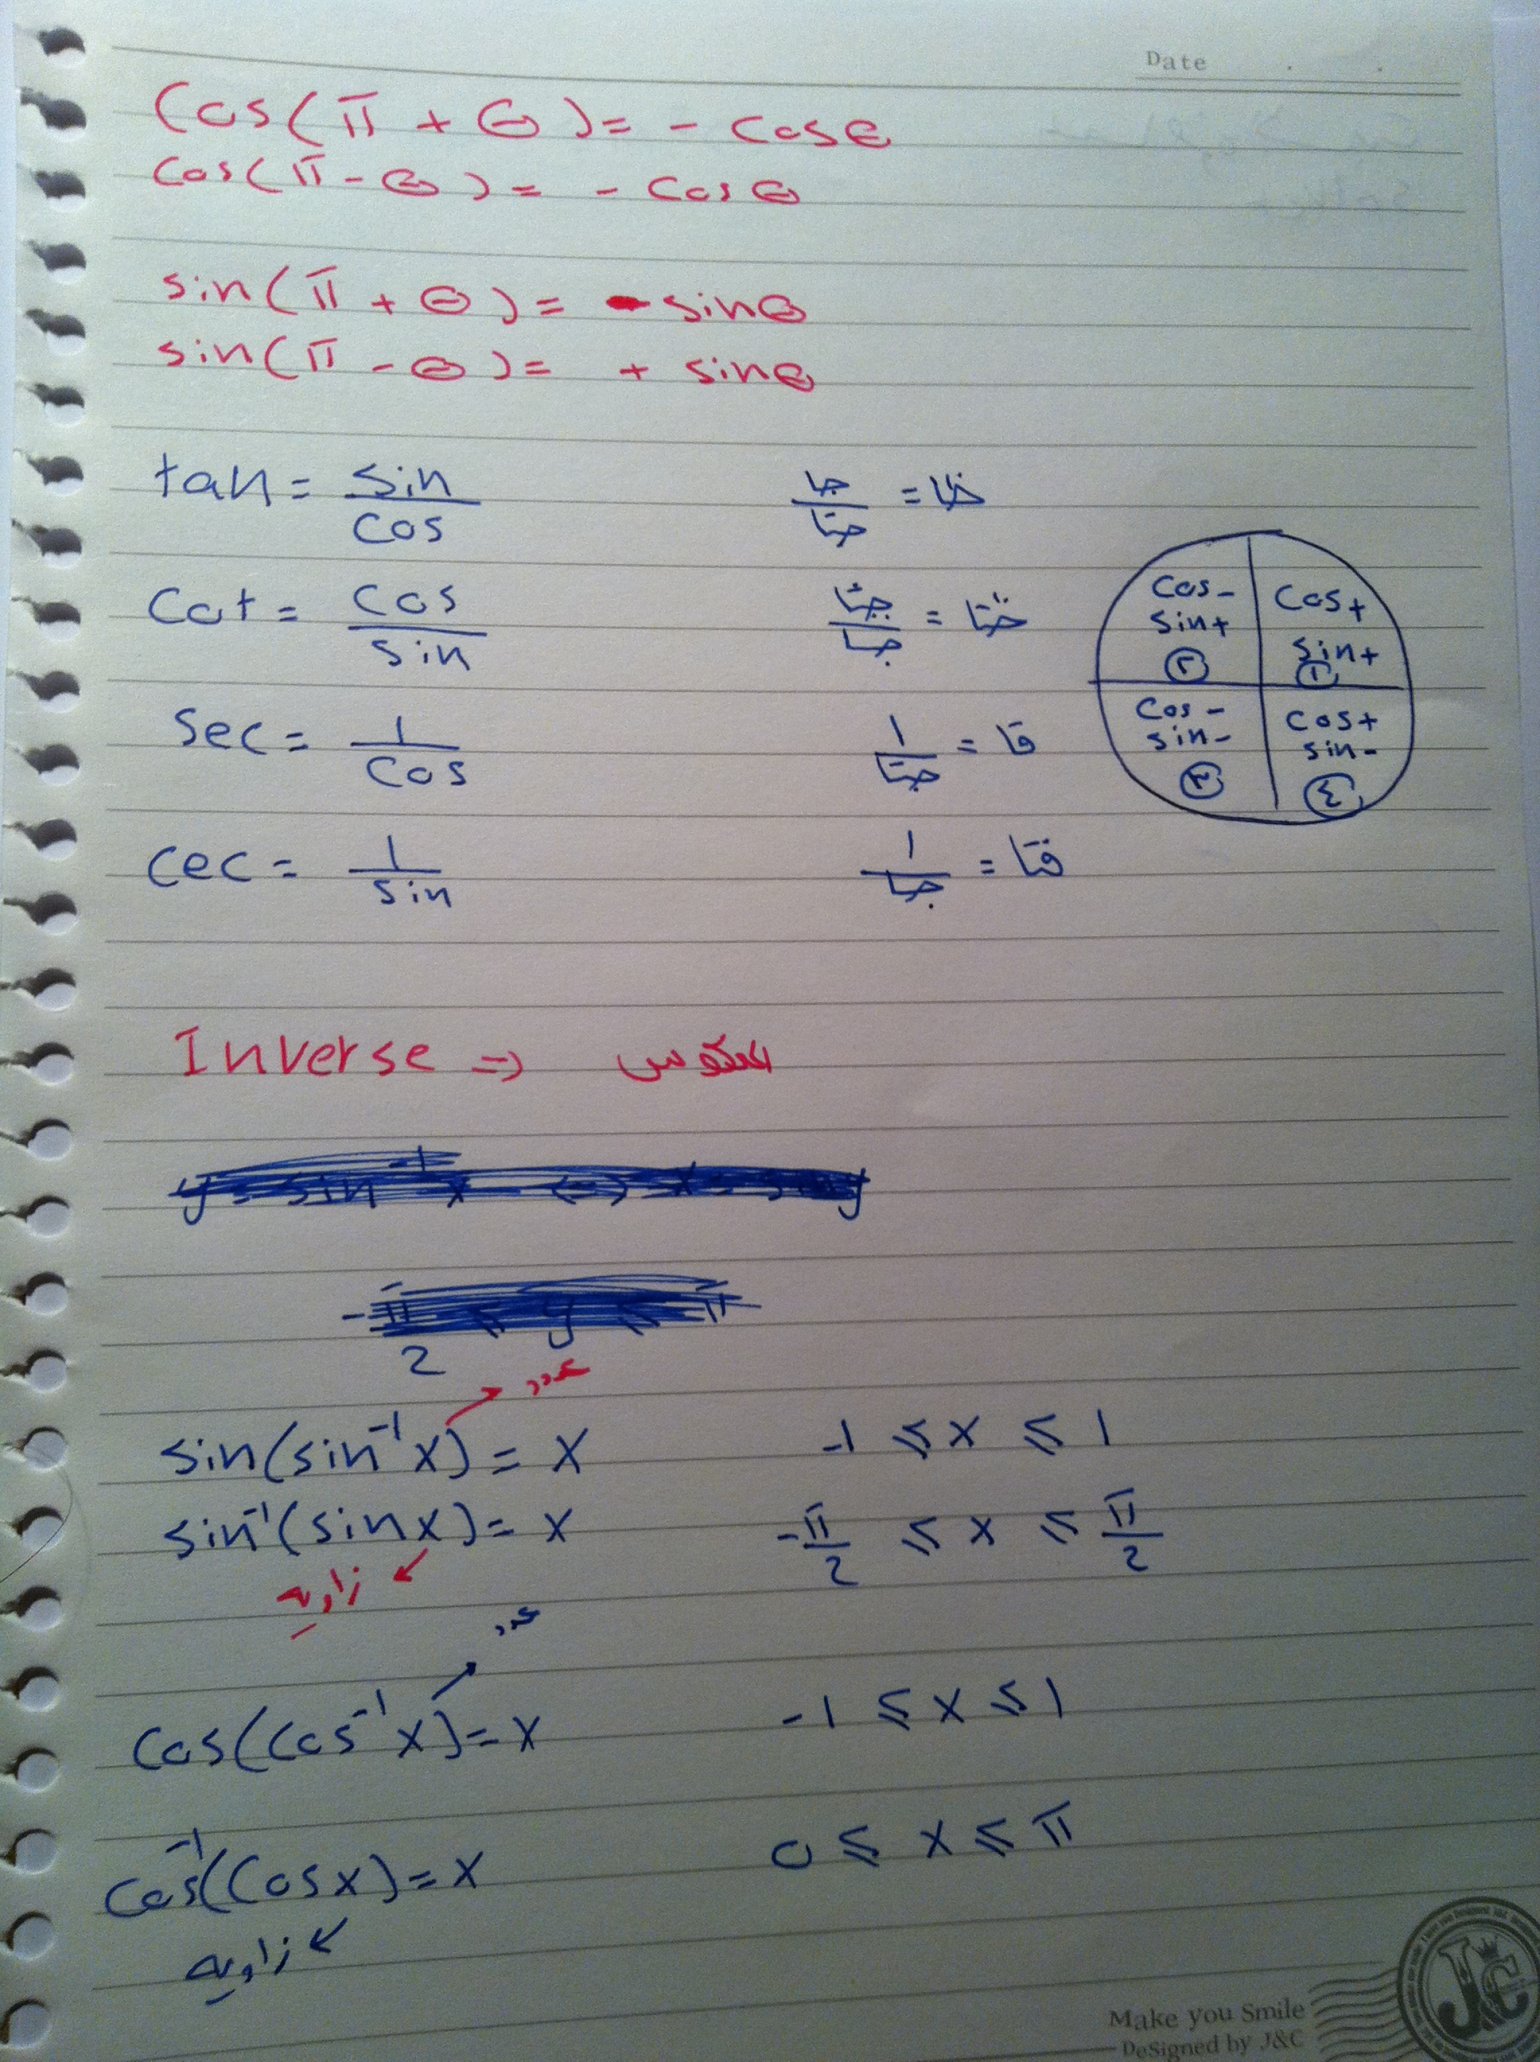 Date
Cos(π + θ) = - cosθ
cos(π - θ) = - cosθ
sin(π + θ) = - sinθ
sin(π - θ) = + sinθ
tan = sin/cos    جا/جتا = ظا
Cot = cos/sin    جتا/جا = ظتا
Sec = 1/cos    ١/جتا = قا
Cec = 1/sin    ١/جا = قتا
cos- sin+ ٢
cos+ sin+ ١
cos- sin- ٣
cos+ sin- ٤
Inverse => المعكوس
y = sin⁻¹ x <=> x = sin y
-π/2 ≤ y ≤ π
عدد
sin(sin⁻¹x) = x    -1 ≤ x ≤ 1
sin⁻¹(sinx) = x    -π/2 ≤ x ≤ π/2
زاويه
عدد
Cos(Cos⁻¹x) = x    -1 ≤ x ≤ 1
Cos⁻¹(Cosx) = x    0 ≤ x ≤ π
زاويه
Make you Smile
DeSigned by J&C
J&C